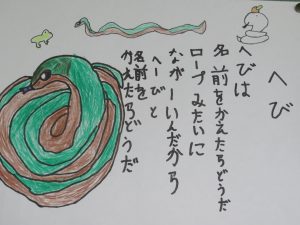 へび
へびは
名前をかえたらどうだ
ロープみたいに
ながーいんだから
へーびと
名前を
かえたらどうだ